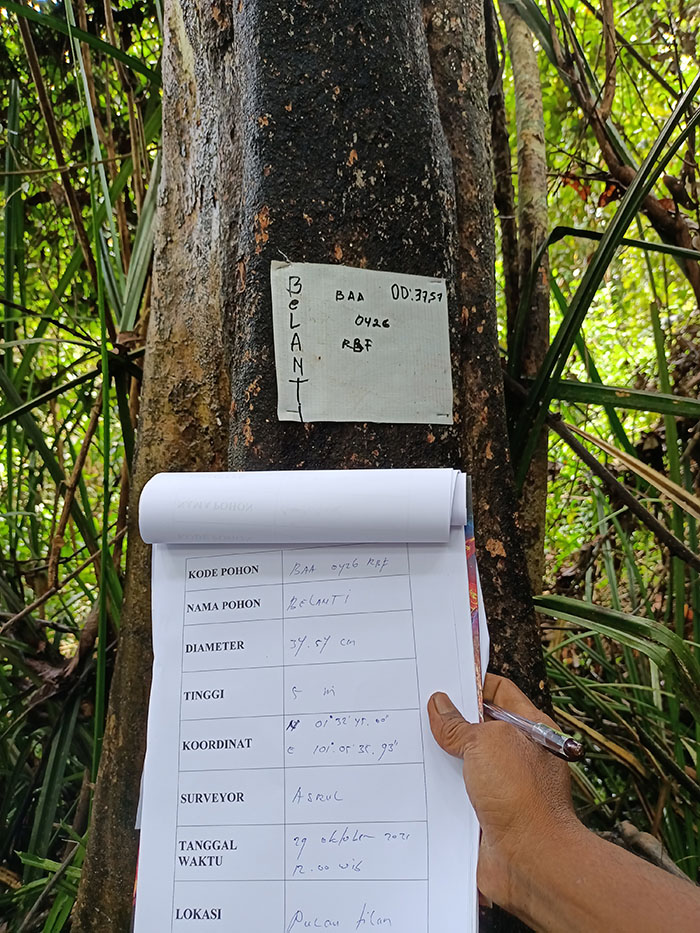 BeLANTI
BAA OD:37,57
0426
RBF
KODE POHON BAA 0426 RBF
NAMA POHON BELANTI
DIAMETER 37.57 cm
TINGGI 5 m
KOORDINAT N 01°32'45.00"
E 101°05'35.93"
SURVEYOR ASRUL
TANGGAL WAKTU 29 oktober 2021
12.00 wib
LOKASI Pulau tilan